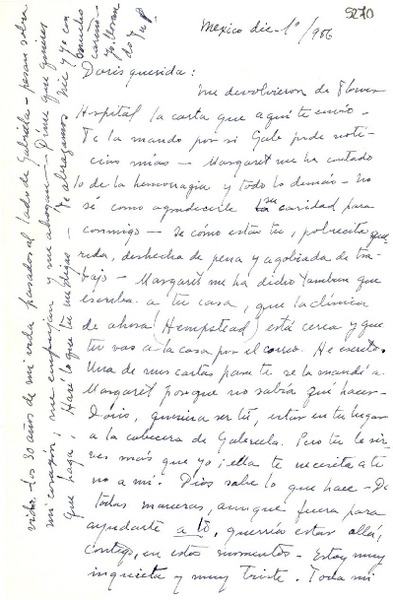 5270
Mexico dic-1º/956
Doris querida:
Me devolvieron de Flower
Hospital la carta que aquí te envío.
Te la mando por si Gab. pide noti-
cias mías — Margaret me ha contado
lo de la hemorragia y todo lo demás — No
sé como agradecerle su caridad para
conmigo — Sé como estás tú, pobrecita que-
rida, deshecha de pena y agobiada de tra-
bajo — Margaret me ha dicho tambien que
escriba a tu casa, que la clínica
de ahora (Hempstead) está cerca y que
tu vas a la casa por el correo. He escrito.
Una de mis cartas para ti se la mandé a
Margaret porque no sabía qué hacer —
Doris, quisiera ser tú, estar en tu lugar
a la cabecera de Gabriela. Pero tú le sir-
ves más que yo; ella te necesita a ti
no a mí. Dios sabe lo que hace — De
todas maneras, aunque fuera para
ayudarte a tí, querría estar allá,
contigo, en estos momentos — Estoy muy
inquieta y muy triste. Toda mi
vida — Los 30 años de mi vida pasados al lado de Gabriela — pesan sobre
mi corazón, me empujan y me ahogan — Dime que quieres
que haga, Haré lo que tú me digas — Te abrazamos
y yo con
mucho
cariño